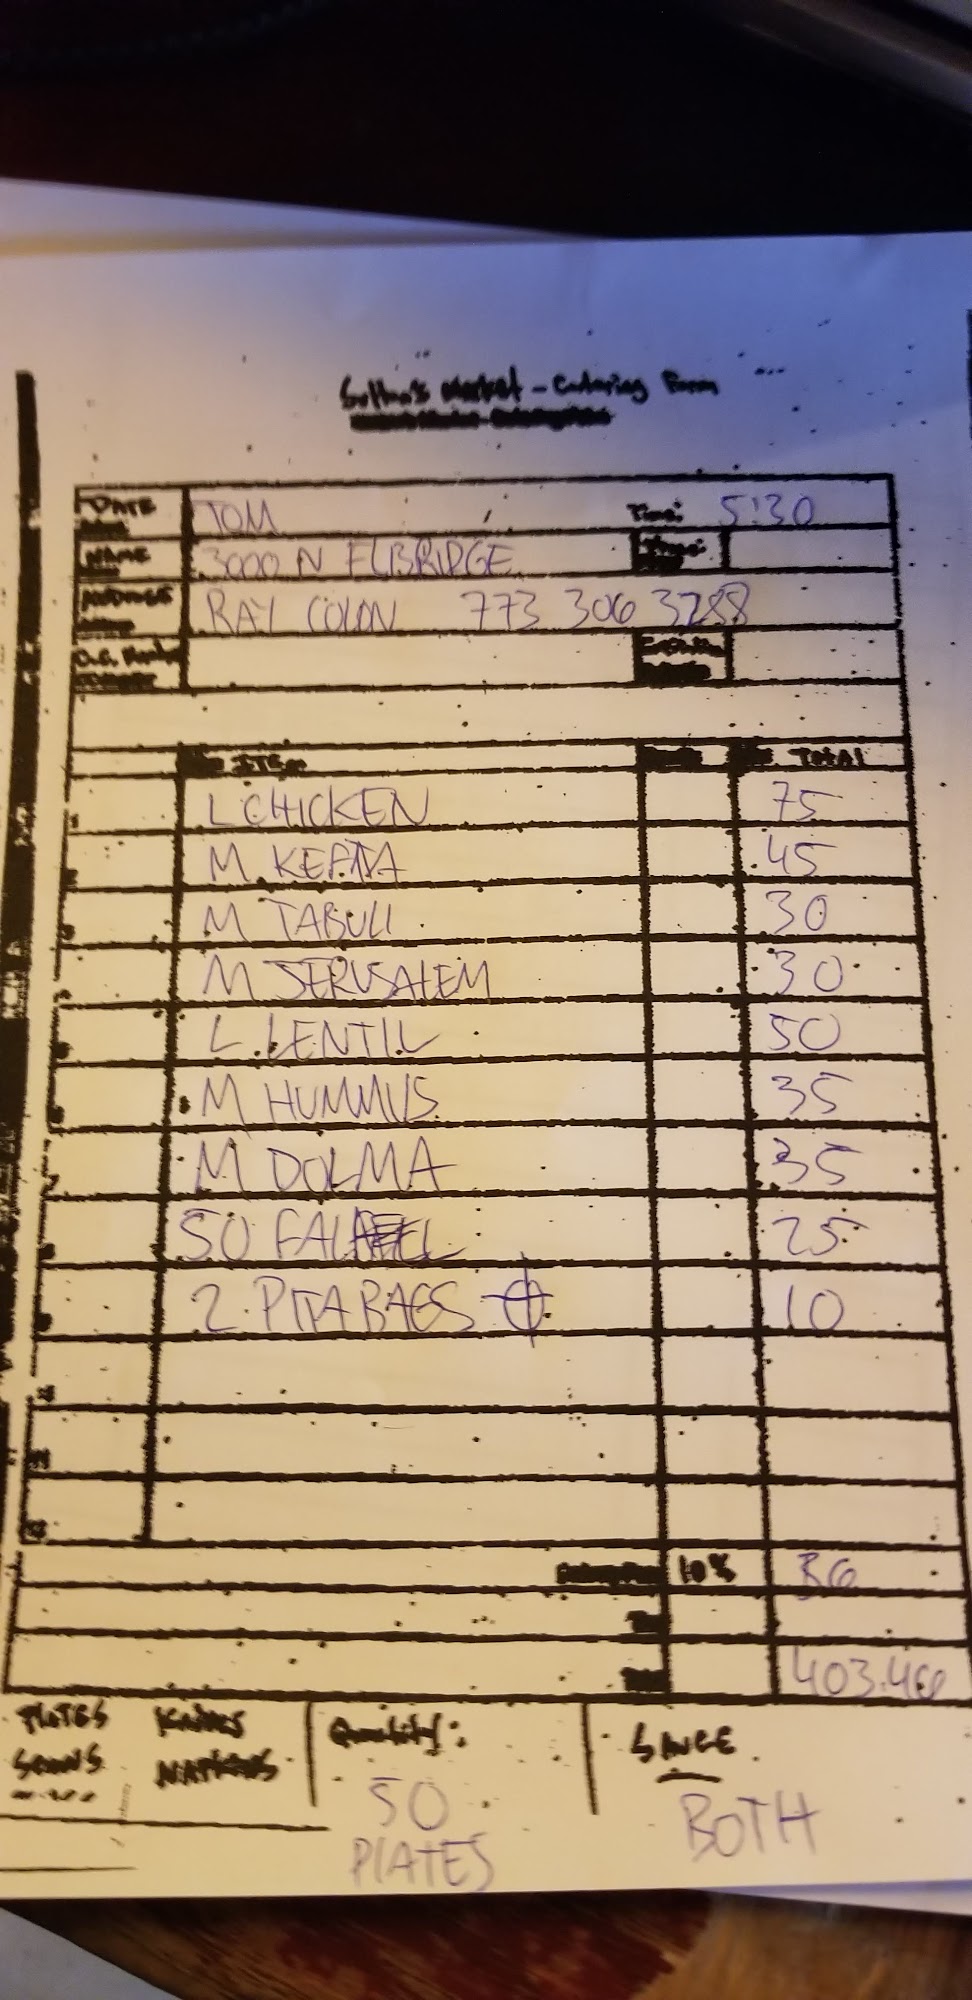 Sultan's Market - Catering Form
DATE TOM Time: 5:30
NAME 3000 N ELBRIDGE
RAY COLON 773 306 3288
ITEM TOTAL
1 L CHICKEN 75
M KEFTA 45
M TABULI 30
M JERUSALEM 30
L LENTIL 50
M HUMMUS 35
7 M DOLMA 35
50 FALAFEL 25
2 PITA BAGS 10
10% 36
403.46
PLATES KNIVES Quantity: SAUCE
SPOONS NAPKINS
50 BOTH
PLATES